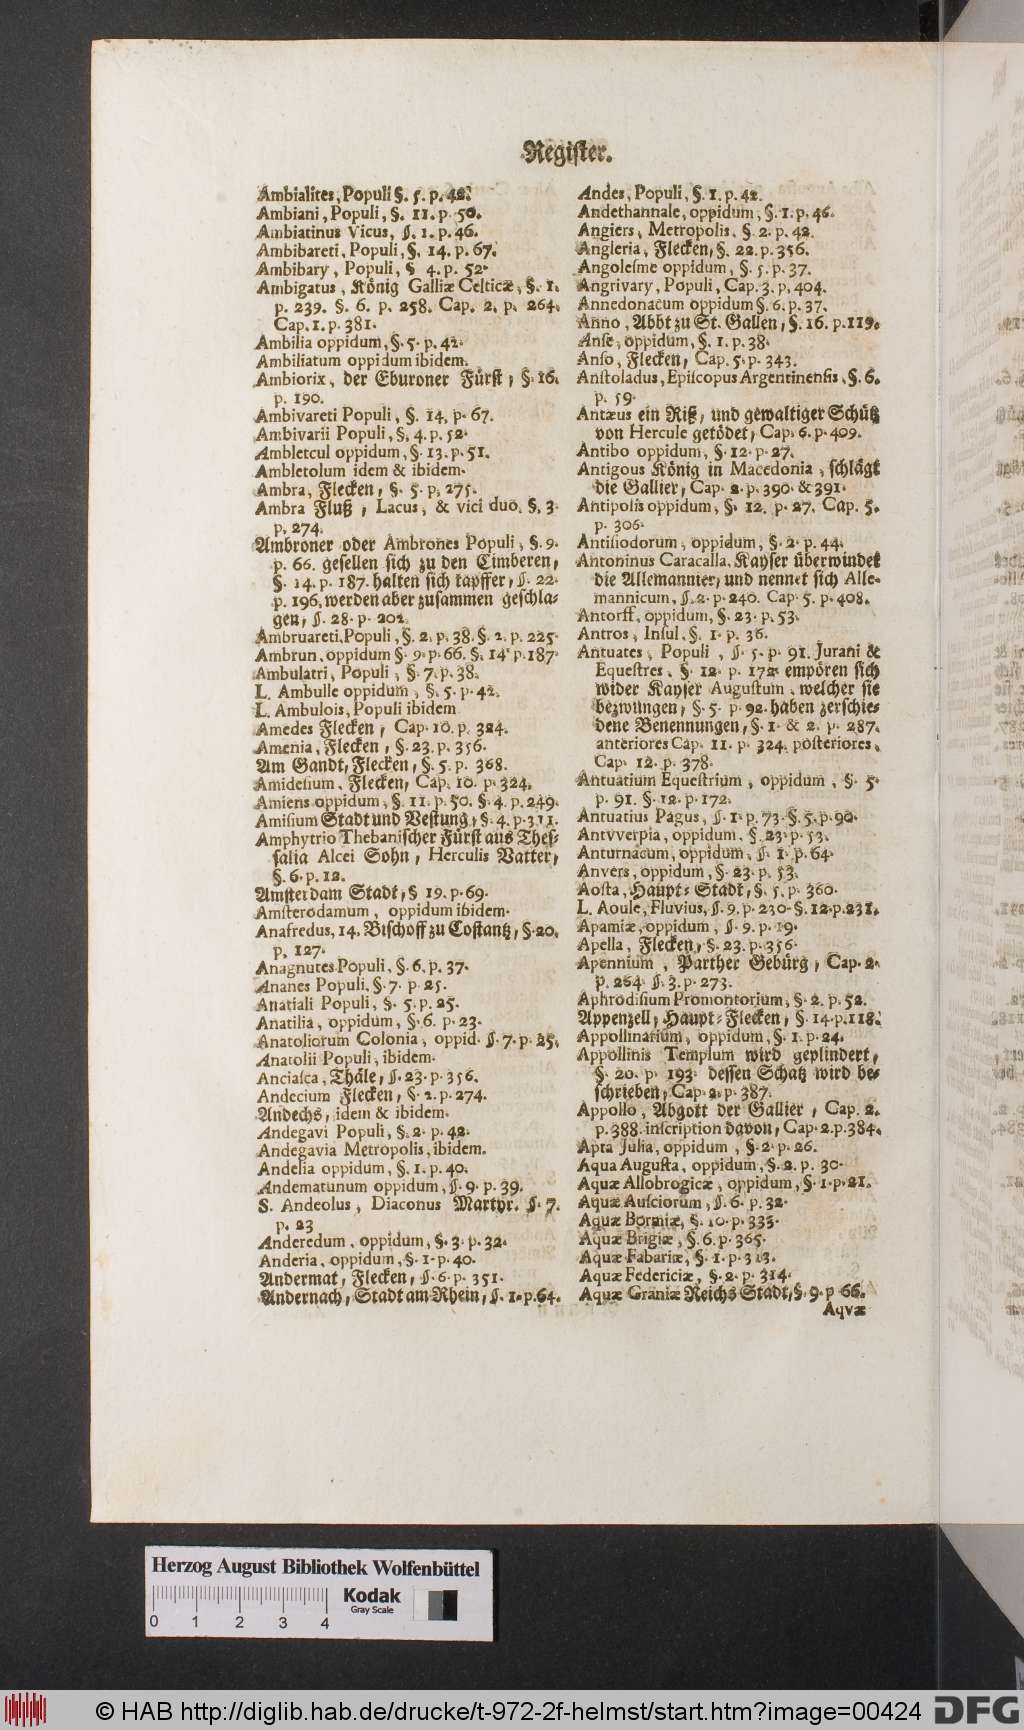 Register.
Ambialites, Populi §. 5. p. 42.
Ambiani, Populi, §. 11. p. 50.
Ambiatinus Vicus, §. 1. p. 46.
Ambibareti, Populi, §. 14. p. 67.
Ambibary, Populi, § 4. p. 52.
Ambigatus, König Galliæ Celticæ, §. 1.
p. 239. §. 6. p. 258. Cap. 2. p. 264.
Cap. 1. p. 381.
Ambilia oppidum, §. 5. p. 42.
Ambiliatum oppidum ibidem.
Ambiorix, der Eburoner Fürst, §. 16.
p. 190.
Ambivareti Populi, §. 14. p. 67.
Ambivarii Populi, §. 4. p. 52.
Ambletcul oppidum, §. 13. p. 51.
Ambletolum idem & ibidem.
Ambra, Flecken, §. 5. p. 275.
Ambra Fluß, Lacus, & vici duo, §. 3.
p. 274.
Ambroner oder Ambrones Populi, §. 9.
p. 66. gesellen sich zu den Cimberen,
§. 14. p. 187. halten sich tapffer, §. 22.
p. 196. werden aber zusammen geschla-
gen, §. 28. p. 202.
Ambruareti, Populi, §. 2. p. 38. §. 2. p. 225.
Ambrun, oppidum §. 9. p. 66. §. 14. p. 187.
Ambulatri, Populi, §. 7. p. 38.
L. Ambulle oppidum, §. 5. p. 42.
L. Ambulois, Populi ibidem
Amedes Flecken, Cap. 10. p. 324.
Amenia, Flecken, §. 23. p. 356.
Am Gandt, Flecken, §. 5. p. 368.
Amidesium, Flecken, Cap. 10. p. 324.
Amiens oppidum, §. 11. p. 50. §. 4. p. 249.
Amisium Stadt und Vestung, §. 4. p. 311.
Amphytrio Thebanischer Fürst aus Thes-
salia Alcei Sohn, Herculis Vatter,
§. 6. p. 12.
Amsterdam Stadt, § 19. p. 69.
Amsterodamum, oppidum ibidem.
Anafredus, 14. Bischoff zu Costantz, §. 20.
p. 127.
Anagnutes Populi, §. 6. p. 37.
Ananes Populi, §. 7. p. 25.
Anatiali Populi, §. 5. p. 25.
Anatilia, oppidum, §. 6. p. 23.
Anatoliorum Colonia, oppid. §. 7. p. 25.
Anatolii Populi, ibidem.
Anciasca, Thäle, §. 23. p. 356.
Andecium Flecken, §. 2. p. 274.
Andechs, idem & ibidem.
Andegavi Populi, §. 2. p. 42.
Andegavia Metropolis, ibidem.
Andelia oppidum, §. 1. p. 40.
Andematunum oppidum, §. 9. p. 39.
S. Andeolus, Diaconus Martyr. §. 7.
p. 23
Anderedum, oppidum, §. 3. p. 32.
Anderia, oppidum, §. 1. p. 40.
Andermat, Flecken, §. 6. p. 351.
Andernach, Stadt am Rhein, §. 1. p. 64.
Andes, Populi, §. 1. p. 42.
Andethannale, oppidum, §. 1. p. 46.
Angiers, Metropolis, §. 2. p. 42.
Angleria, Flecken, §. 22. p. 356.
Angolesme oppidum, §. 5. p. 37.
Angrivary, Populi, Cap. 3. p. 404.
Annedonacum oppidum §. 6. p. 37.
Anno, Abbt zu St. Gallen, §. 16. p. 119.
Anse, oppidum, §. 1. p. 38.
Anso, Flecken, Cap. 5. p. 343.
Anstoladus, Episcopus Argentinensis, §. 6.
p. 59.
Antæus ein Riß, und gewaltiger Schütz
von Hercule getödet, Cap. 6. p. 409.
Antibo oppidum, §. 12. p. 27.
Antigous König in Macedonia, schlägt
die Gallier, Cap. 2. p. 390. & 391.
Antipolis oppidum, §. 12. p. 27. Cap. 5.
p. 306.
Antisiodorum, oppidum, §. 2. p. 44.
Antoninus Caracalla, Kayser überwindet
die Allemannier, und nennet sich Alle-
mannicum, §. 2. p. 240. Cap. 5. p. 408.
Antorff, oppidum, §. 23. p. 53.
Antros, Insul, §. 1. p. 36.
Antuates, Populi, §. 5. p. 91. Jurani &
Equestres, §. 12. p. 172. empören sich
wider Kayser Augustum, welcher sie
bezwungen, §. 5. p. 92. haben zerschie-
dene Benennungen, §. 1. & 2. p. 287.
anteriores Cap. 11. p. 324. posteriores,
Cap. 12. p. 378.
Antuatium Equestrium, oppidum, §. 5.
p. 91. §. 12. p. 172.
Antuatius Pagus, §. 1. p. 73. §. 5. p. 90.
Antvverpia, oppidum, §. 23. p. 53.
Anturnacum, oppidum, §. 1. p. 64.
Anvers, oppidum, §. 23. p. 53.
Aosta, Haupt-Stadt, §. 5. p. 360.
L. Aoule, Fluvius, §. 9. p. 230. §. 12. p. 231.
Apamiæ, oppidum, §. 9. p. 19.
Apella, Flecken, §. 23. p. 356.
Apennium, Parther Gebürg, Cap. 2.
p. 264. §. 3. p. 273.
Aphrodisium Promontorium, §. 2. p. 52.
Appenzell, Haupt-Flecken, §. 14. p. 118.
Appollinarium, oppidum, §. 1. p. 24.
Appollinis Templum wird geplindert,
§. 20. p. 193. dessen Schatz wird be-
schrieben, Cap. 2. p. 387.
Appollo, Abgott der Gallier, Cap. 2.
p. 388. inscription davon, Cap. 2. p. 384.
Apta Julia, oppidum, §. 2. p. 26.
Aqua Augusta, oppidum, §. 2. p. 30.
Aquæ Allobrogicæ, oppidum, §. 1. p. 21.
Aquæ Ausciorum, §. 6. p. 32.
Aquæ Bormiæ, §. 10. p. 333.
Aquæ Brigiæ, §. 6. p. 365.
Aquæ Fabariæ, §. 1. p. 313.
Aquæ Federiciæ, §. 2. p. 314.
Aquæ Graniæ Reichs Stadt, §. 9. p 66.
Aqvæ
Herzog August Bibliothek Wolfenbüttel
Kodak
Gray Scale
0 1 2 3 4
© HAB http://diglib.hab.de/drucke/t-972-2f-helmst/start.htm?image=00424
DFG